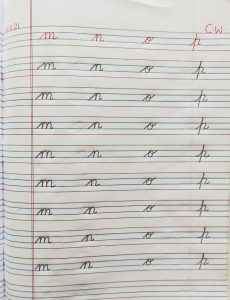 C.W
m n o p
m n o p
m n o p
m n o p
m n o p
m n o p
m n o p
m n o p
m n o p